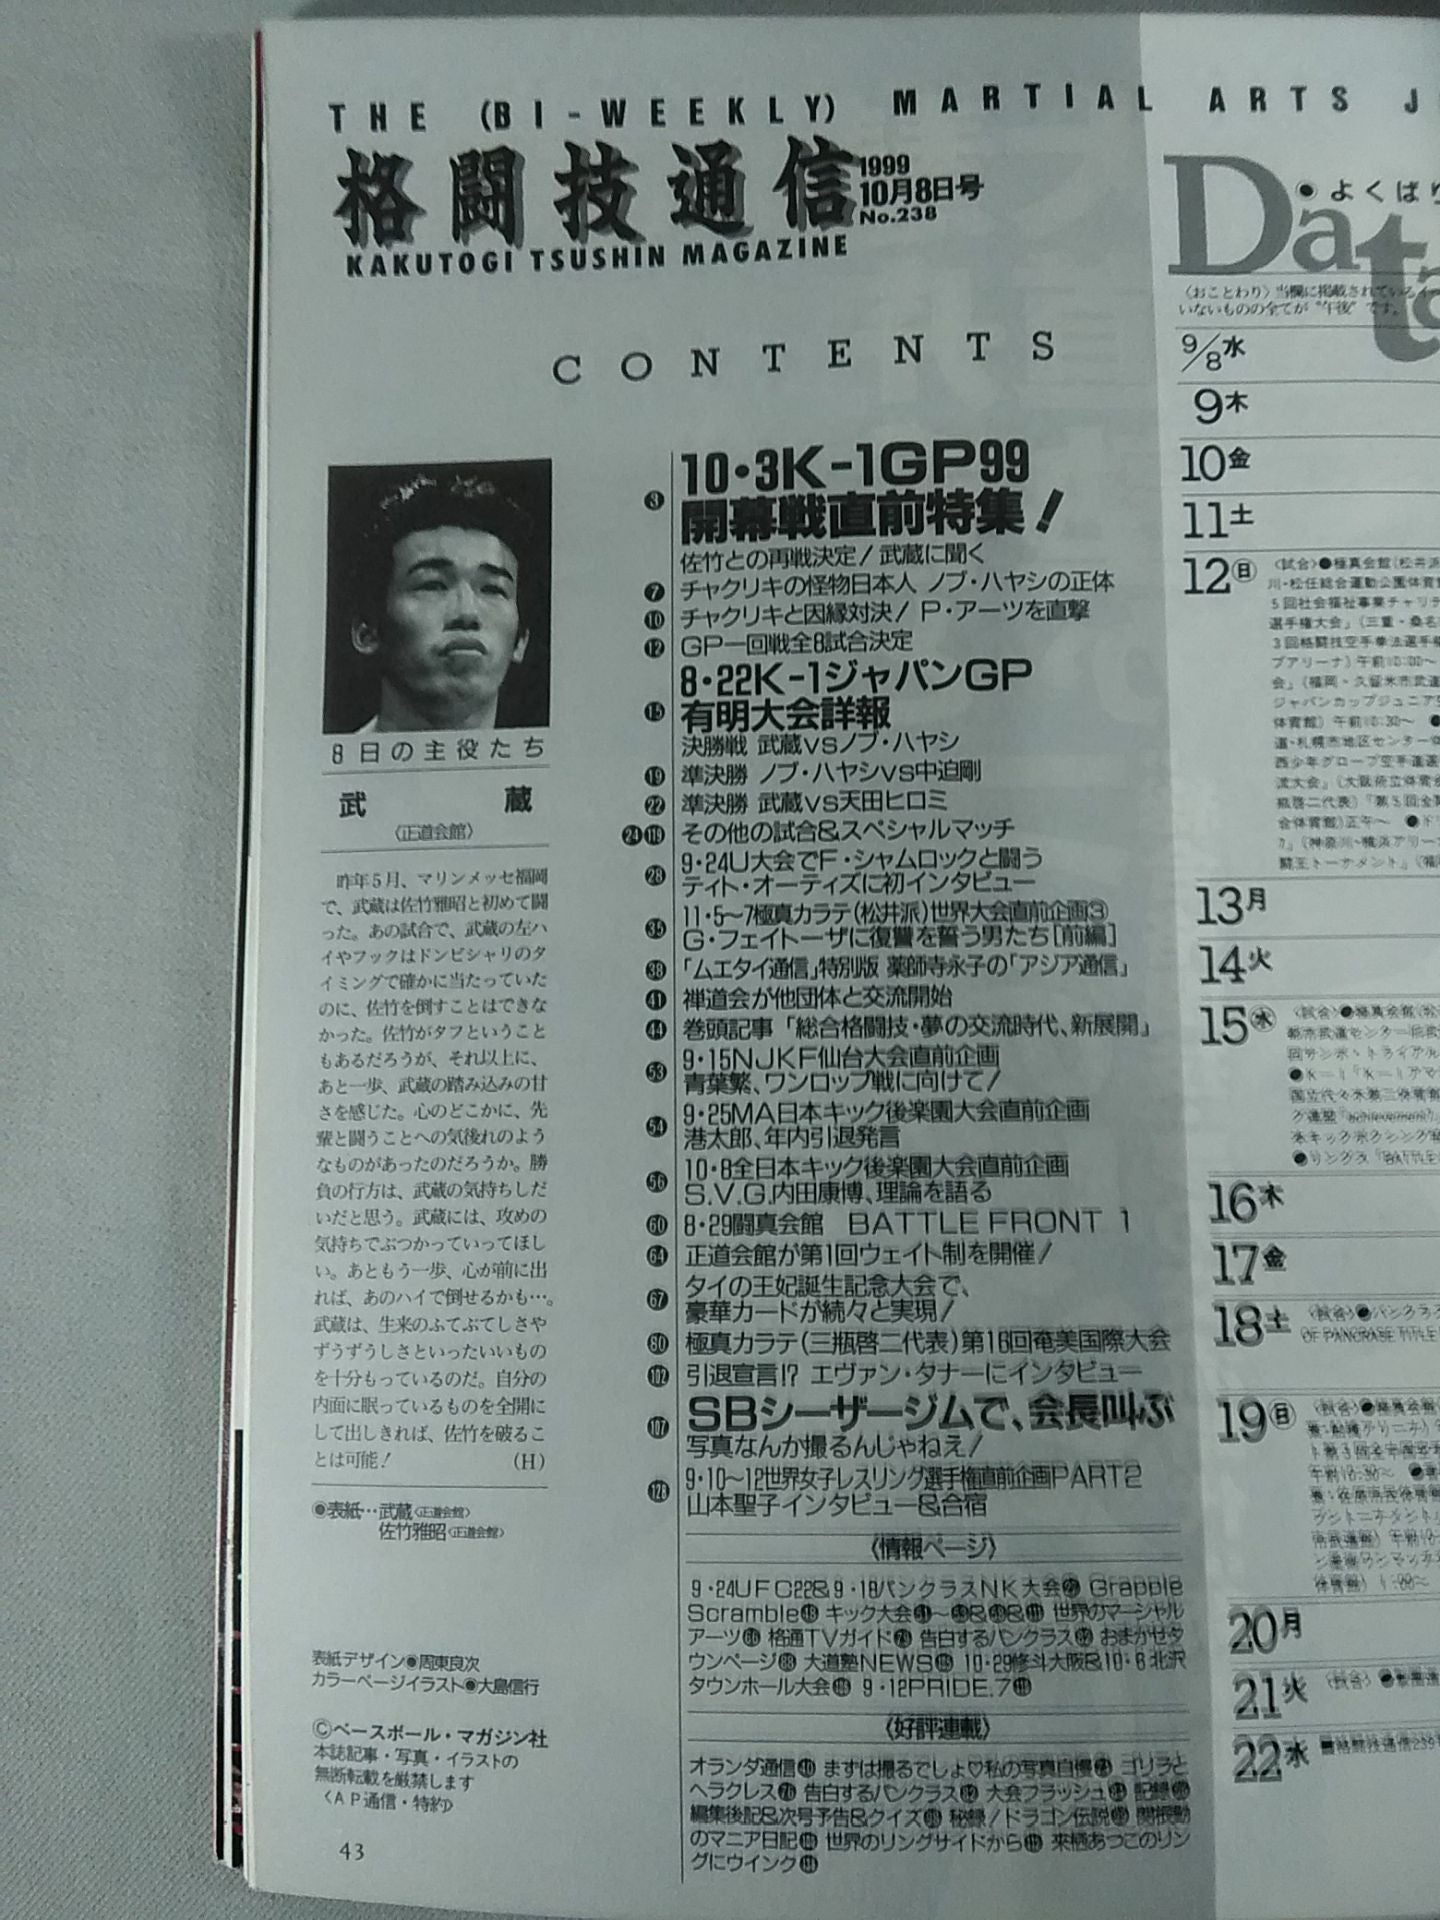 THE (BI-WEEKLY) MARTIAL ARTS J
格闘技通信
1999
10月8日号
No.238
KAKUTOGI TSUSHIN MAGAZINE
CONTENTS
8日の主役たち
武蔵
〈正道会館〉
昨年5月、マリンメッセ福岡
で、武蔵は佐竹雅昭と初めて闘
った。あの試合で、武蔵の左ハ
イやフックはドンピシャリのタ
イミングで確かに当たっていた
のに、佐竹を倒すことはできな
かった。佐竹がタフということ
もあるだろうが、それ以上に、
あと一歩、武蔵の踏み込みの甘
さを感じた。心のどこかに、先
輩と闘うことへの気後れのよう
なものがあったのだろうか。勝
負の行方は、武蔵の気持ちしだ
いだと思う。武蔵には、攻めの
気持ちでぶつかっていってほし
い。あともう一歩、心が前に出
れば、あのハイで倒せるかも…。
武蔵は、生来のふてぶてしさや
ずうずうしさといったいいもの
を十分もっているのだ。自分の
内面に眠っているものを全開に
して出しきれば、佐竹を破るこ
とは可能! (H)
●表紙…武蔵〈正道会館〉
佐竹雅昭〈正道会館〉
表紙デザイン●周東良次
カラーページイラスト●大島信行
©ベースボール・マガジン社
本誌記事・写真・イラストの
無断転載を厳禁します
〈AP通信・特約〉
43
10・3K-1GP99
3 開幕戦直前特集!
佐竹との再戦決定!武蔵に聞く
7 チャクリキの怪物日本人 ノブ・ハヤシの正体
10 チャクリキと因縁対決! P・アーツを直撃
12 GP一回戦全8試合決定
8・22K-1ジャパンGP
15 有明大会詳報
決勝戦 武蔵vsノブ・ハヤシ
19 準決勝 ノブ・ハヤシvs中迫剛
22 準決勝 武蔵vs天田ヒロミ
24 119 その他の試合&スペシャルマッチ
28 9・24U大会でF・シャムロックと闘う
ティト・オーティズに初インタビュー
35 11・5〜7極真カラテ(松井派)世界大会直前企画③
G・フェイトーザに復讐を誓う男たち[前編]
38 「ムエタイ通信」特別版 薬師寺永子の「アジア通信」
41 禅道会が他団体と交流開始
44 巻頭記事「総合格闘技・夢の交流時代、新展開」
53 9・15NJKF仙台大会直前企画
青葉繁、ワンロップ戦に向けて!
54 9・25MA日本キック後楽園大会直前企画
港太郎、年内引退発言
56 10・8全日本キック後楽園大会直前企画
S.V.G.内田康博、理論を語る
60 8・29闘真会館 BATTLE FRONT 1
64 正道会館が第1回ウェイト制を開催!
67 タイの王妃誕生記念大会で、
豪華カードが続々と実現!
80 極真カラテ(三瓶啓二代表)第16回奄美国際大会
102 引退宣言!? エヴァン・タナーにインタビュー
107 SBシーザージムで、会長叫ぶ
写真なんか撮るんじゃねえ!
128 9・10〜12世界女子レスリング選手権直前企画PART2
山本聖子インタビュー&合宿
〈情報ページ〉
9・24UFC22&9・18パンクラスNK大会 Grapple
Scramble キック大会 世界のマーシャル
アーツ 格通TVガイド 告白するパンクラス おまかせタ
ウンページ 大道塾NEWS 10・29修斗大阪&10・6北沢
タウンホール大会 9・12PRIDE.7
〈好評連載〉
オランダ通信 まずは撮るでしょ♡私の写真自慢 ゴリラと
ヘラクレス 告白するパンクラス 大会フラッシュ 記録
編集後記&次号予告&クイズ 秘録!ドラゴン伝説 関根勤
のマニア日記 世界のリングサイドから 来栖あつこのリン
グにウインク
Data
●よくばり
〈おことわり〉当欄に掲載されている
いないものの全てが"午後"です。
9/8水
9木
10金
11土
12日
〈試合〉●極真会館(松井派
川・松任総合運動公園体育館
5回社会福祉事業チャリテ
選手権大会」(三重・桑名
3回格闘技空手拳法選手権
プアリーナ)午前10:00〜
会」(福岡・久留米市武道
ジャパンカップジュニア
体育館)午前10:30〜
道・札幌市地区センター
西少年グローブ空手道選
流大会」(大阪府立体育会
瓶啓二代表)「第5回全
会体育館)正午〜
(神奈川・横浜アリーナ
闘王トーナメント」(福
13月
14火
15水
16木
17金
18土
〈試合〉●パンクラス
OF PANCRASE TITLE
19日
20月
21火
22水
■格闘技通信239